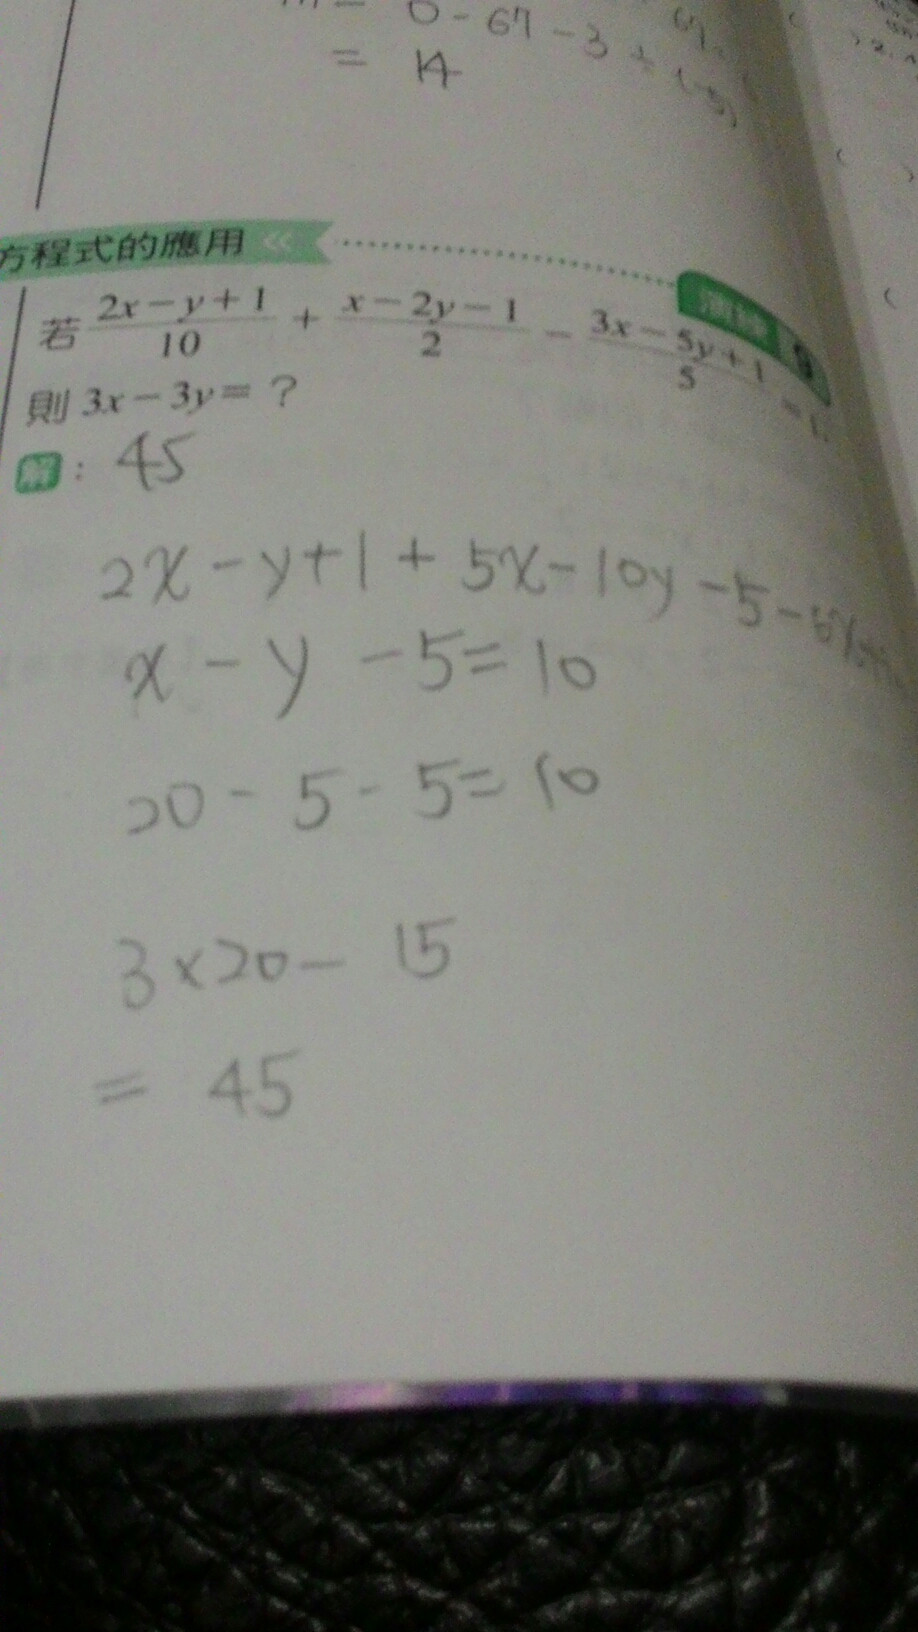 0 - 67 - 3 ÷ (-5)
= 14
方程式的應用 《
演練 9
若 (2x-y+1)/10 + (x-2y-1)/2 - (3x-5y+1)/5 = 1,
則 3x-3y= ?
解 : 45
2x-y+1+5x-10y-5-6x
x-y-5=10
20-5-5=10
3×20-15
= 45